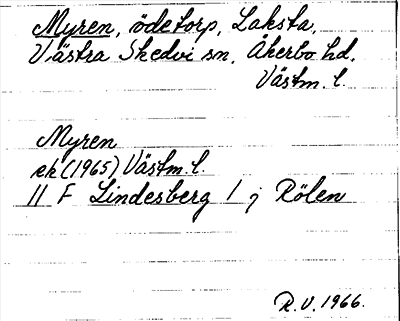 Myren, ödetorp, Laksta,
Västra Skedvi sn, Åkerbo hd,
Västm. l.
Myren
ek (1965) Västm. l.
11 F Lindesberg 1 j Rölen
R. V. 1966.